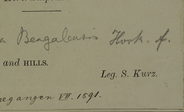 Bengalensis Hook. f.
and HILLS.
Leg. S. Kurz.
gegangen VII. 1891.